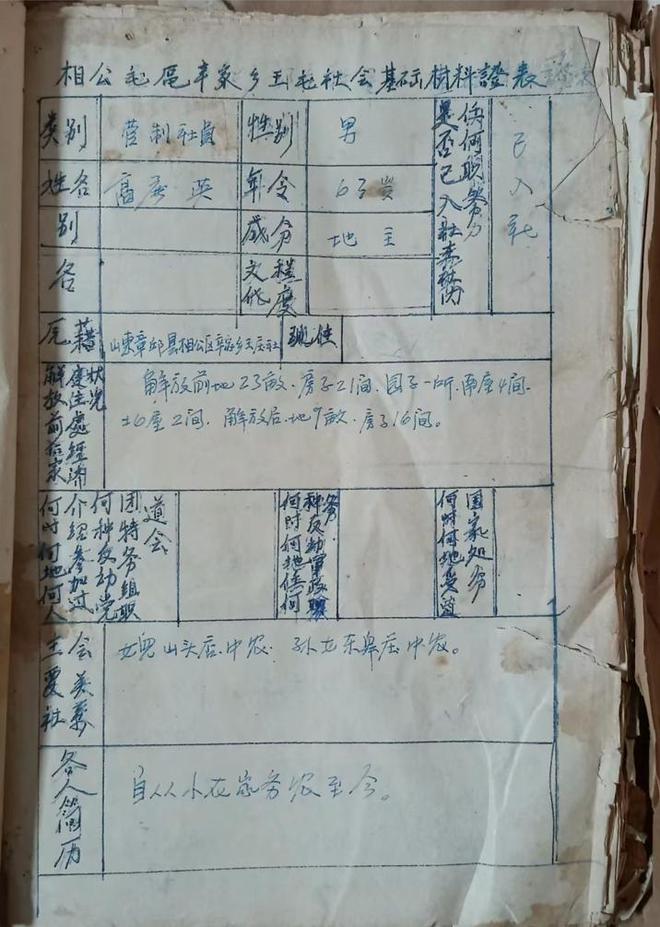 相公毛区辛家乡王毛社会基础材料證表
类别 管制社員 性别 男 是否已入社素材 任何职劳力 已入社
姓名 高 英 年令 63岁
别名 成分 地主
文化程度
原籍 山东章邱县相公区辛家乡王庄社 现住
解放前后家庭住處經济状况 解放前地23亩、房子21间、园子一所、南屋4间、
北屋2间、解放后地9亩、房子16间。
何时何地何人介绍参加过何种反动党团特务组职道会 何时何地任何种反动軍政職务 何时何地受过国家处分
主要社会关系 女儿山头店中农、孙女东皋庄中农。
各人简历 自从小在家务农至今。